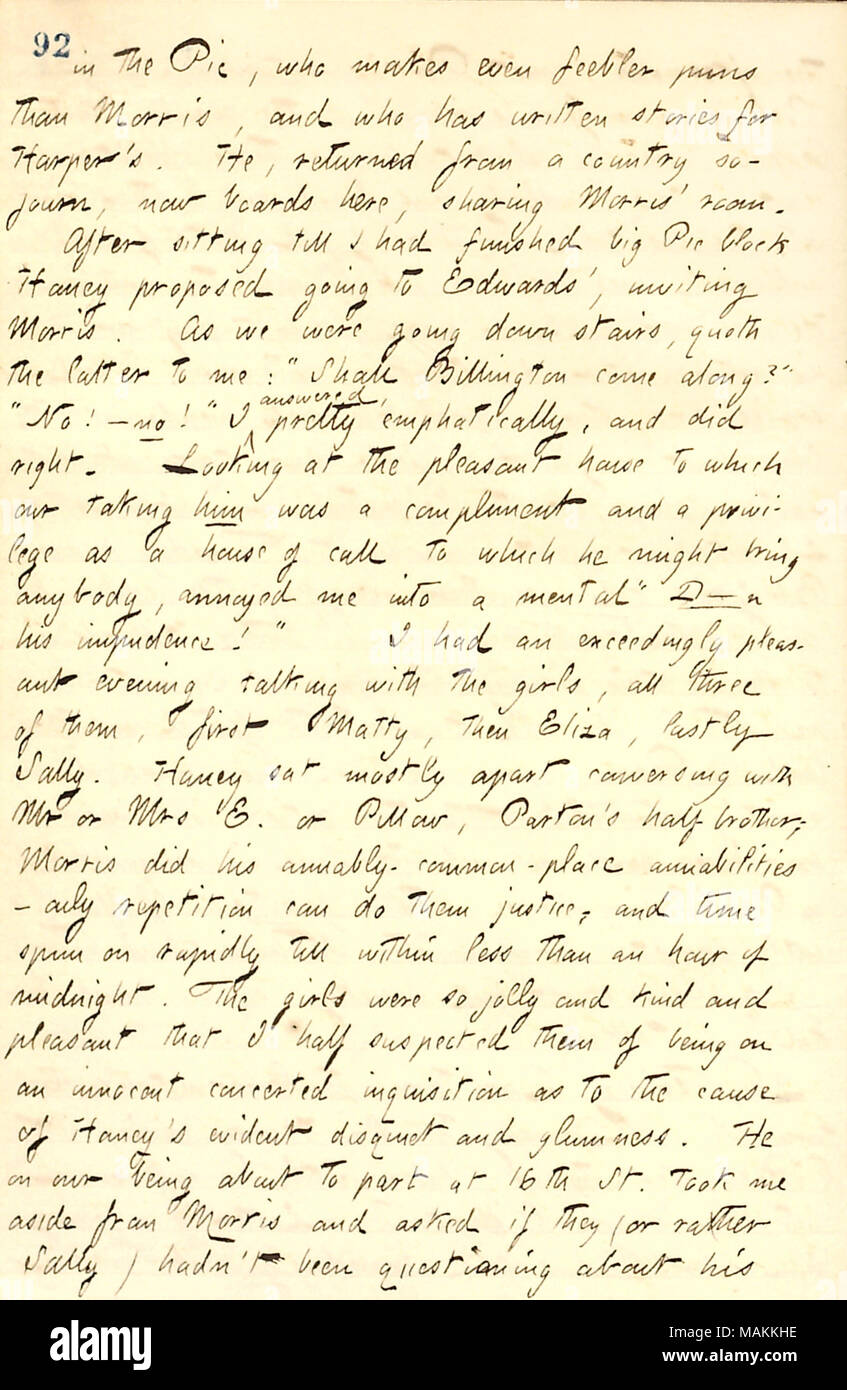 92
in the Pic, who makes even feebler puns
than Morris, and who has written stories for
Harper's. He, returned from a country so-
journ, now boards here, sharing Morris' room.
After sitting till I had finished big Pic block
Haney proposed going to Edwards', inviting
Morris. As we were going down stairs, quoth
the latter to me: "Shall Billington come along?"
answered
"No! — no!" I pretty emphatically, and did
right. Looking at the pleasant house to which
our taking him was a compliment and a privi-
lege as a house of call to which he might bring
anybody, annoyed me into a mental "D—n
his impudence!" I had an exceedingly pleas-
ant evening talking with the girls, all three
of them, first Matty, then Eliza, lastly
Sally. Haney sat mostly apart conversing with
Mr or Mrs E. or Pillow, Parton's half brother;
Morris did his amiably-common-place amiabilities
— only repetition can do them justice; and time
spun on rapidly till within less than an hour of
midnight. The girls were so jolly and kind and
pleasant that I half suspected them of being on
an innocent concerted inquisition as to the cause
of Haney's evident disquiet and glumness. He
on our being about to part at 16th St. took me
aside from Morris and asked if they (or rather
Sally) hadn't been questioning about his
alamy
Image ID: MAKKHE
www.alamy.com